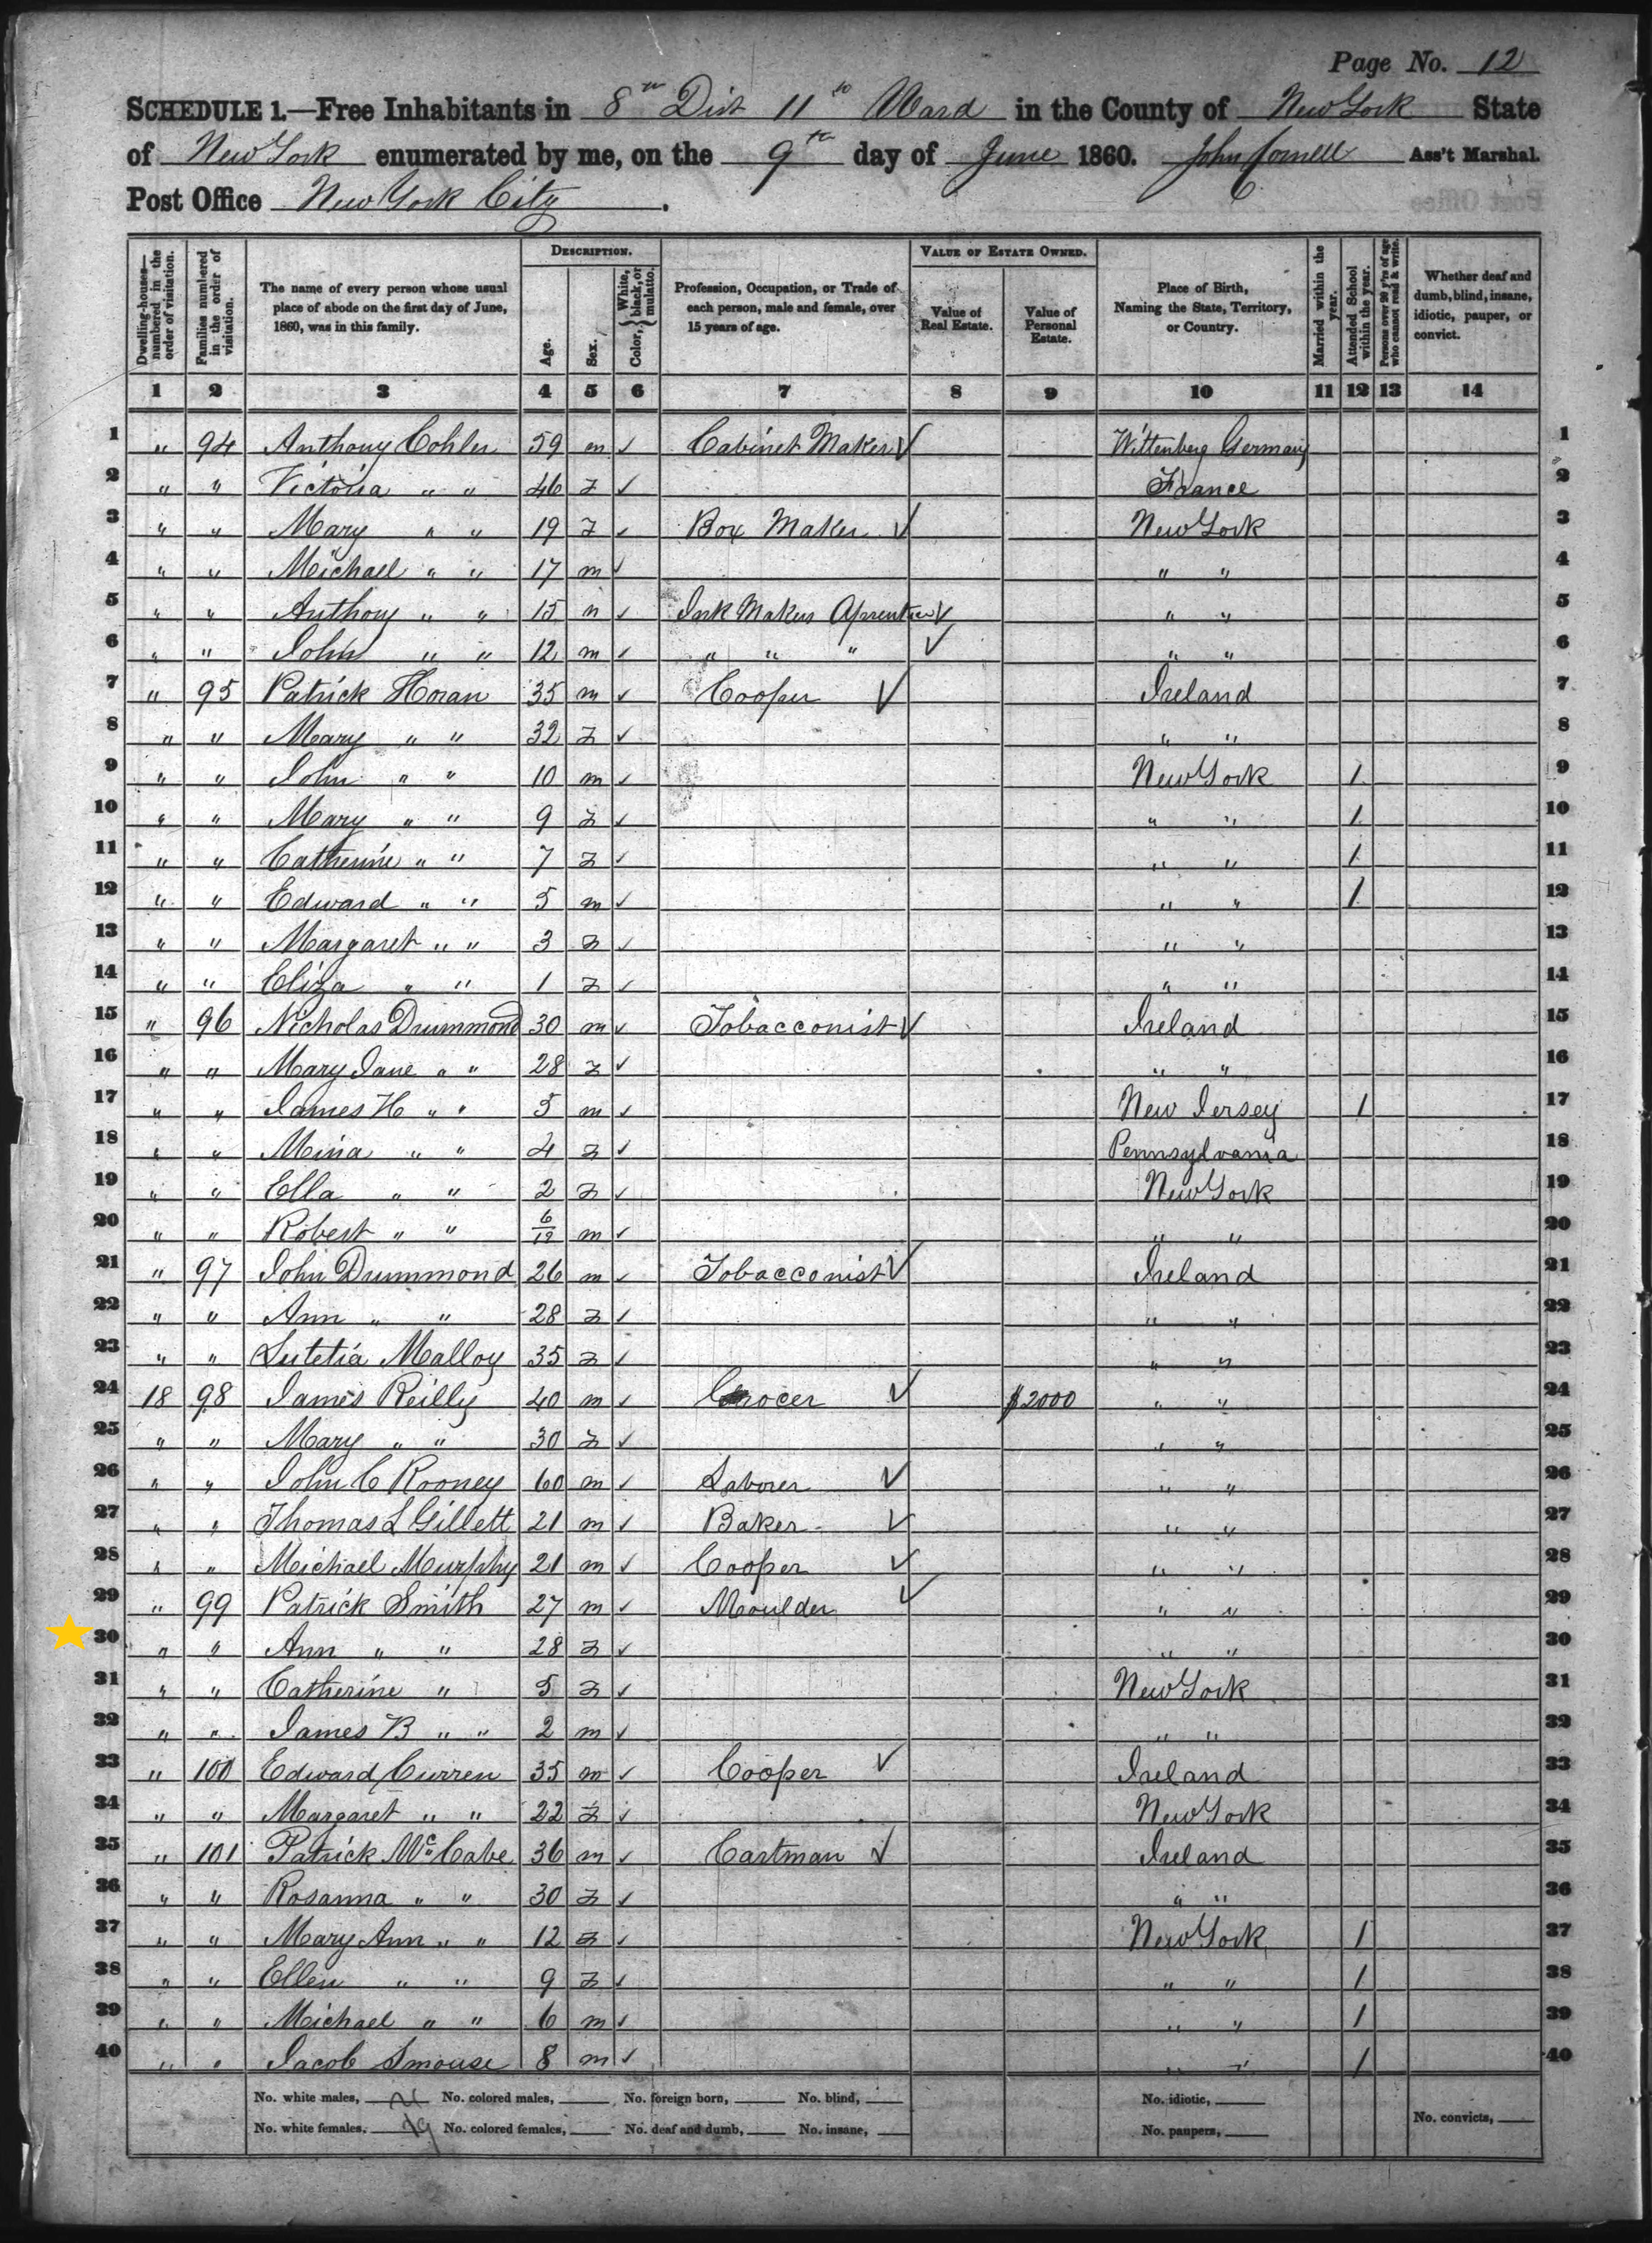 Page No. 12
SCHEDULE 1.—Free Inhabitants in 8th Dist 11th Ward in the County of New York State
of New York enumerated by me, on the 9th day of June 1860. John Cornell Ass't Marshal.
Post Office New York City.
Dwelling-houses—numbered in the order of visitation. Families numbered in the order of visitation. The name of every person whose usual place of abode on the first day of June, 1860, was in this family. DESCRIPTION. Age. Sex. Color, { White, black, or mulatto. Profession, Occupation, or Trade of each person, male and female, over 15 years of age. VALUE OF ESTATE OWNED. Value of Real Estate. Value of Personal Estate. Place of Birth, Naming the State, Territory, or Country. Married within the year. Attended School within the year. Persons over 20 y'rs of age who cannot read & write. Whether deaf and dumb, blind, insane, idiotic, pauper, or convict.
1 2 3 4 5 6 7 8 9 10 11 12 13 14
1 " 94 Anthony Cohler 59 m ✓ Cabinet Maker ✓ Wittenberg Germany 1
2 " " Victoria " " 46 f ✓ France 2
3 " " Mary " " 19 f ✓ Box Maker ✓ New York 3
4 " " Michael " " 17 m ✓ " " 4
5 " " Anthony " " 15 m ✓ Ink Makers Aprentice ✓ " " 5
6 " " John " " 12 m ✓ " " " ✓ " " 6
7 " 95 Patrick Horan 35 m ✓ Cooper ✓ Ireland 7
8 " " Mary " " 32 f ✓ " " 8
9 " " John " " 10 m ✓ New York 1 9
10 " " Mary " " 9 f ✓ " " 1 10
11 " " Catherine " " 7 f ✓ " " 1 11
12 " " Edward " " 5 m ✓ " " 1 12
13 " " Margaret " " 3 f ✓ " " 13
14 " " Eliza " " 1 f ✓ " " 14
15 " 96 Nicholas Drummond 30 m ✓ Tobacconist ✓ Ireland 15
16 " " Mary Jane " " 28 f ✓ " " 16
17 " " James H " " 5 m ✓ New Jersey 1 17
18 " " Mina " " 4 f ✓ Pennsylvania 18
19 " " Ella " " 2 f ✓ New York 19
20 " " Robert " " 6/12 m ✓ " " 20
21 " 97 John Drummond 26 m ✓ Tobacconist ✓ Ireland 21
22 " " Ann " " 28 f ✓ " " 22
23 " " Lutetia Malloy 35 f ✓ " " 23
24 18 98 James Reilly 40 m ✓ Grocer ✓ $2000 " " 24
25 " " Mary " " 30 f ✓ " " 25
26 " " John C Rooney 60 m ✓ Laborer ✓ " " 26
27 " " Thomas L Gillett 21 m ✓ Baker ✓ " " 27
28 " " Michael Murphy 21 m ✓ Cooper ✓ " " 28
29 " 99 Patrick Smith 27 m ✓ Moulder ✓ " " 29
30 " " Ann " " 28 f ✓ " " 30
31 " " Catherine " 5 f ✓ New York 31
32 " " James B " " 2 m ✓ " " 32
33 " 100 Edward Curren 35 m ✓ Cooper ✓ Ireland 33
34 " " Margaret " " 22 f ✓ New York 34
35 " 101 Patrick McCabe 36 m ✓ Cartman ✓ Ireland 35
36 " " Rosanna " " 30 f ✓ " " 36
37 " " Mary Ann " " 12 f ✓ New York 1 37
38 " " Ellen " " 9 f ✓ " " 1 38
39 " " Michael " " 6 m ✓ " " 1 39
40 " " Jacob Smouse 8 m ✓ " " 1 40
No. white males, 21 No. colored males, No. foreign born, No. blind, No. idiotic,
No. white females, 19 No. colored females, No. deaf and dumb, No. insane, No. paupers, No. convicts,